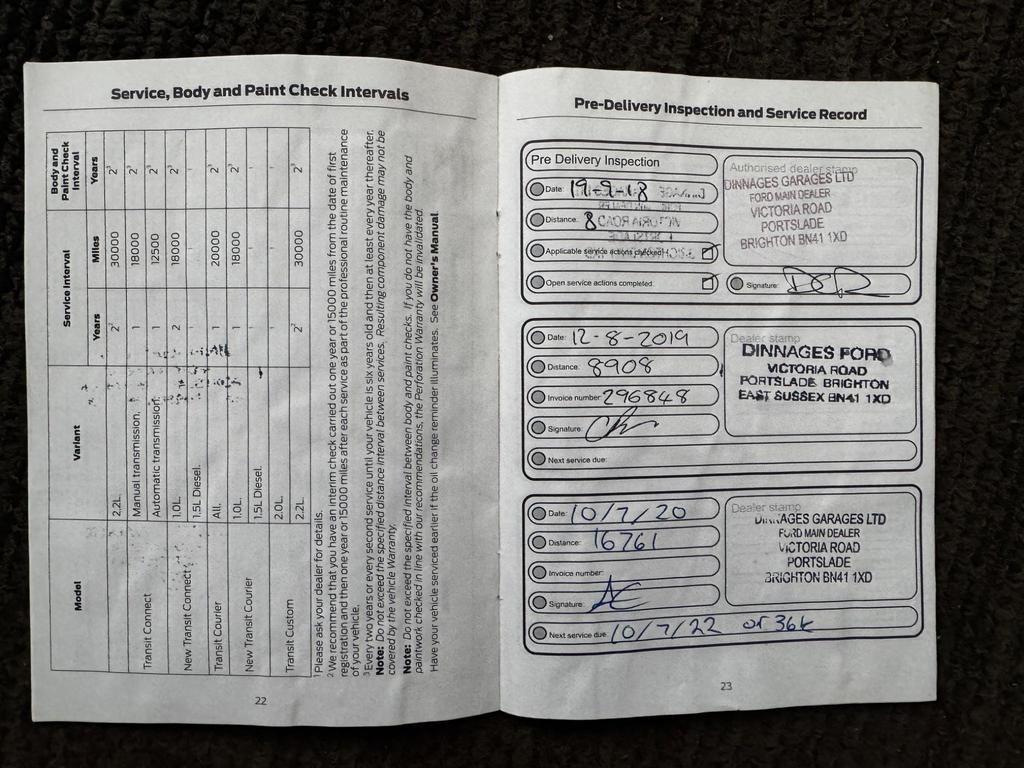 Service, Body and Paint Check Intervals
Model Variant Service Interval Body and Paint Check Interval
Years Miles Years
2.2L. 2² 30000 2³
Transit Connect Manual transmission. 1 18000 2³
Automatic transmission. 1 12500 2³
New Transit Connect 1.0L. 2 18000 2³
1.5L Diesel. - - -
Transit Courier All. 1 20000 2³
New Transit Courier 1.0L. 1 18000 2³
1.5L Diesel. - -
Transit Custom 2.0L. - - -
2.2L. 2² 30000 2³
¹ Please ask your dealer for details.
² We recommend that you have an interim check carried out one year or 15000 miles from the date of first
registration and then one year or 15000 miles after each service as part of the professional routine maintenance
of your vehicle.
³ Every two years or every second service until your vehicle is six years old and then at least every year thereafter.
Note: Do not exceed the specified distance interval between services. Resulting component damage may not be
covered by the vehicle Warranty.
Note: Do not exceed the specified interval between body and paint checks. If you do not have the body and
paintwork checked in line with our recommendations, the Perforation Warranty will be invalidated.
Have your vehicle serviced earlier if the oil change reminder illuminates. See Owner's Manual.
22
Pre-Delivery Inspection and Service Record
Pre Delivery Inspection
Date: 19-9-18
Distance: 8
Applicable service actions checked
Open service actions completed:
Authorised dealer stamp
DINNAGES GARAGES LTD
FORD MAIN DEALER
VICTORIA ROAD
PORTSLADE
BRIGHTON BN41 1XD
Signature:
Date: 12-8-2019
Distance: 8908
Invoice number: 296848
Signature:
Next service due:
Dealer stamp
DINNAGES FORD
VICTORIA ROAD
PORTSLADE BRIGHTON
EAST SUSSEX BN41 1XD
Date: 10/7/20
Distance: 16761
Invoice number:
Signature:
Next service due: 10/7/22 or 36k
Dealer stamp
DINNAGES GARAGES LTD
FORD MAIN DEALER
VICTORIA ROAD
PORTSLADE
BRIGHTON BN41 1XD
23